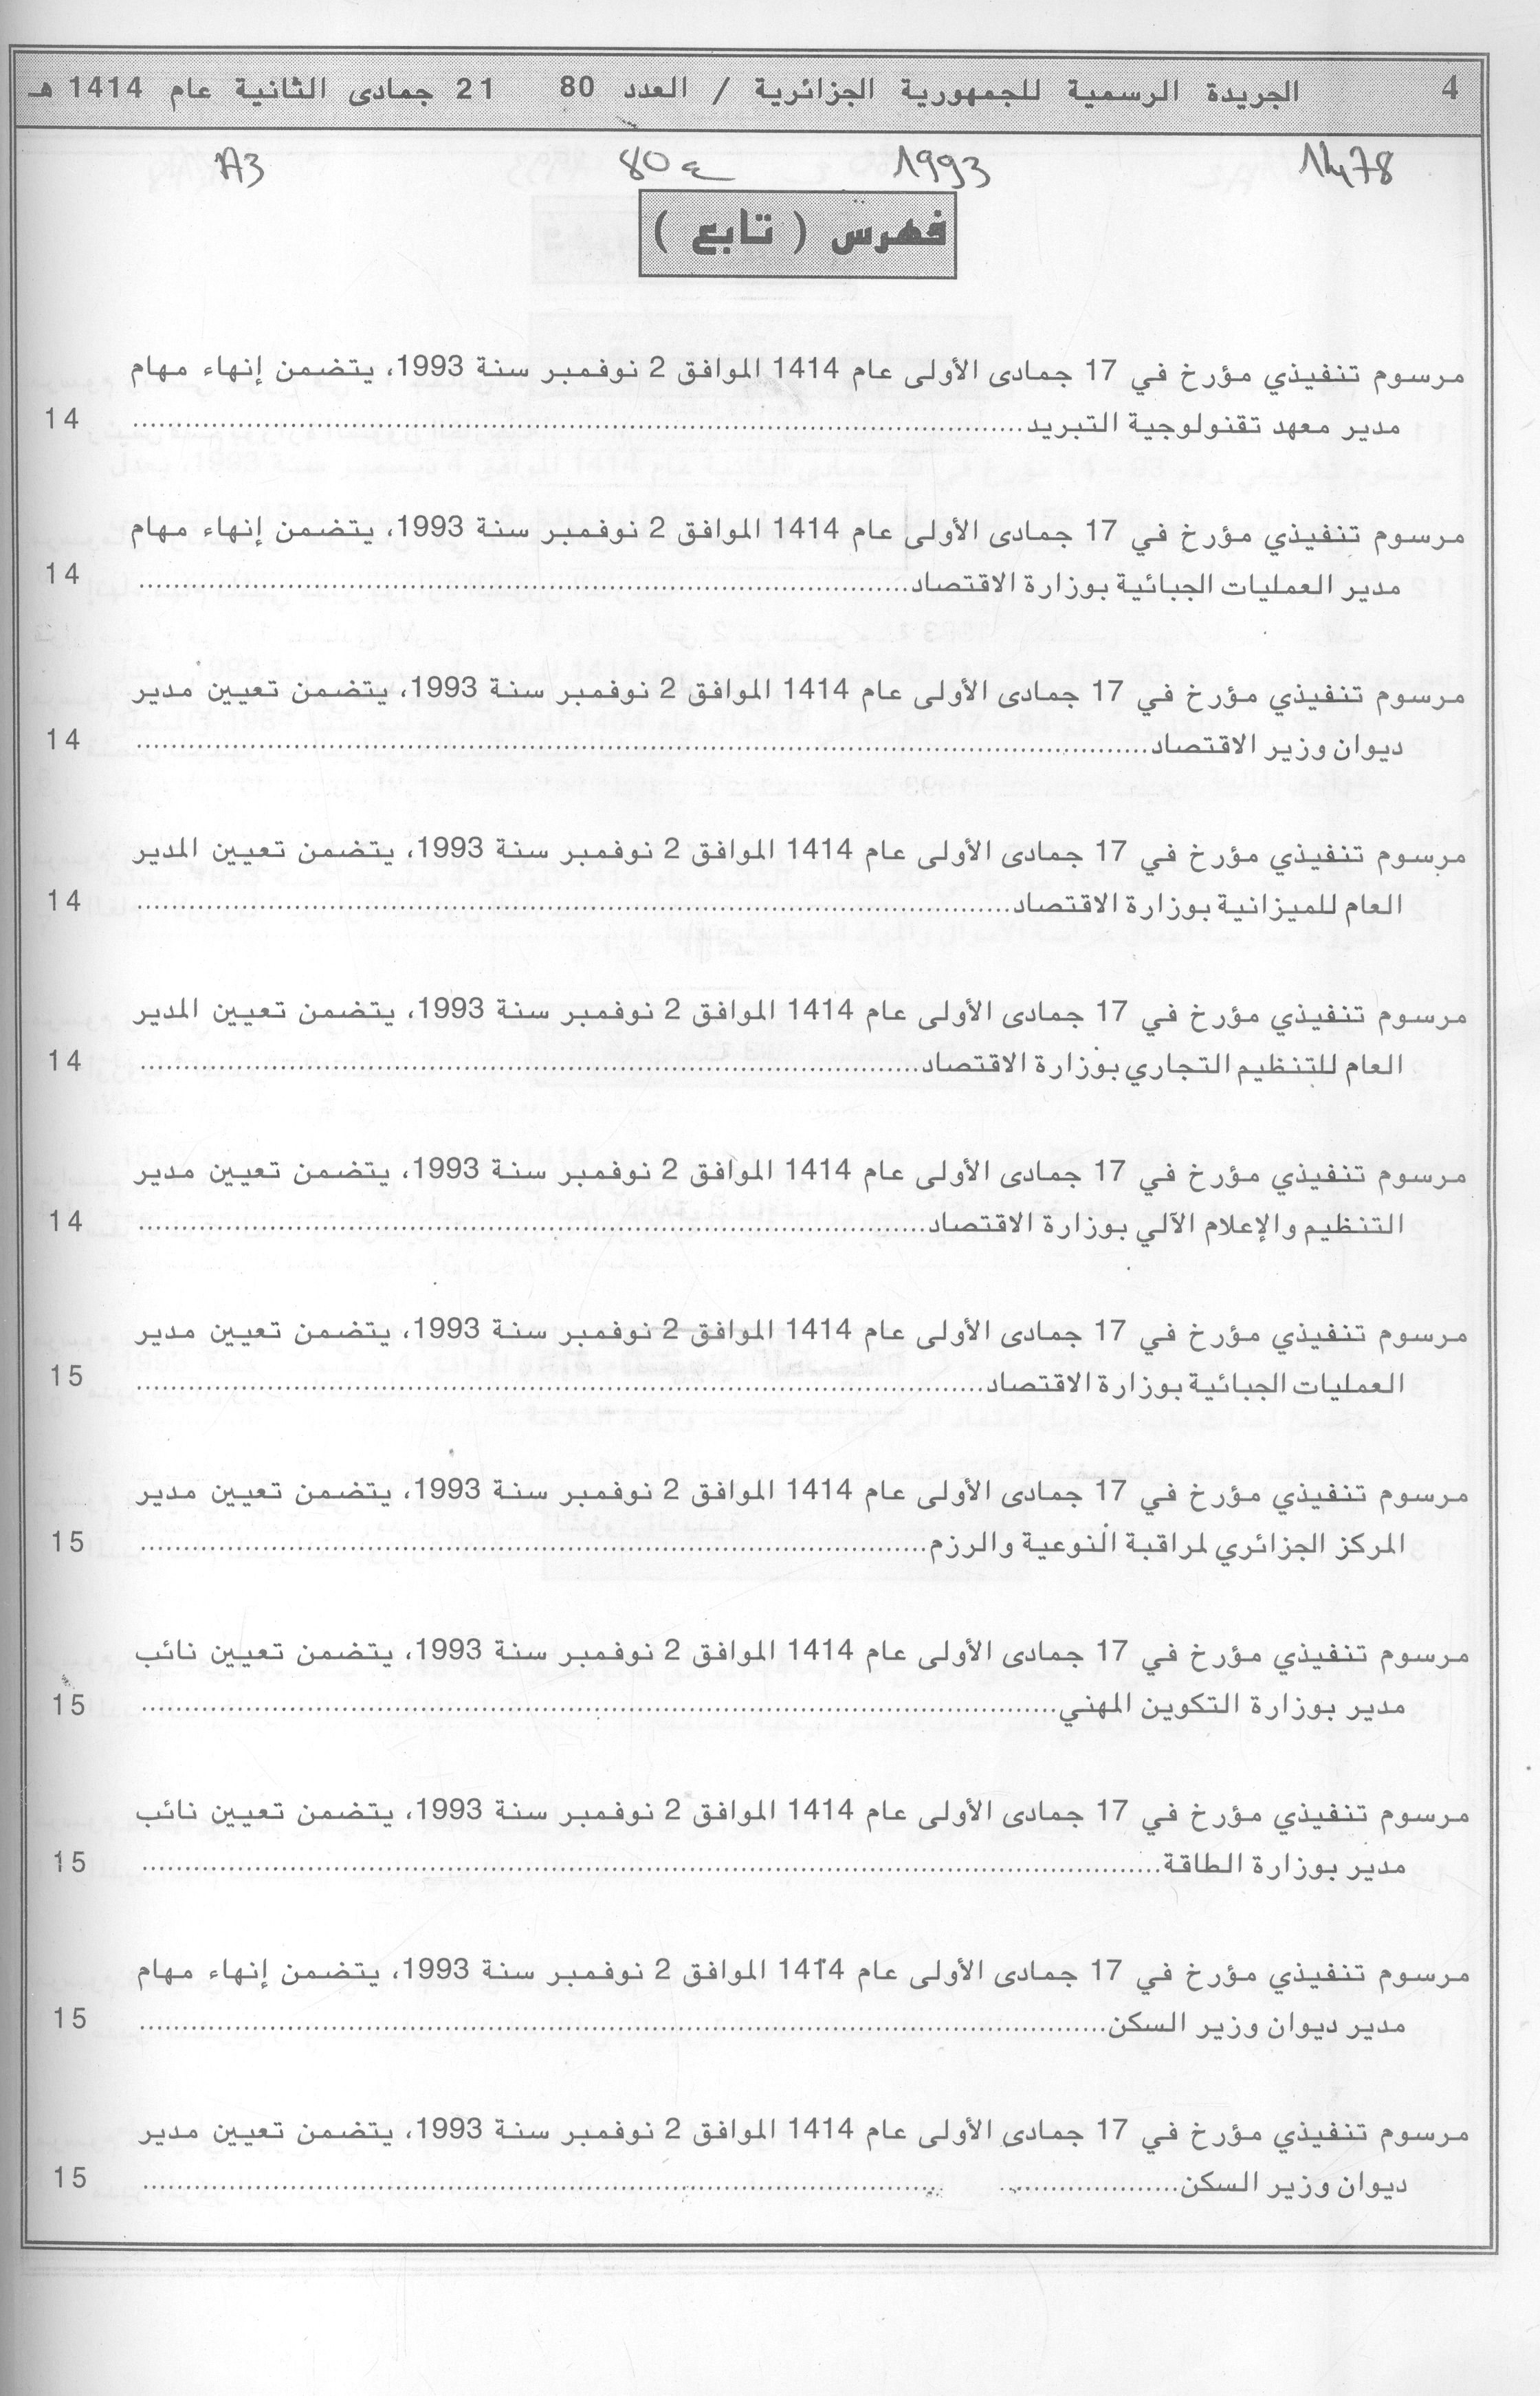 4 الجريدة الرسمية للجمهورية الجزائرية / العدد 80 21 جمادى الثانية عام 1414 هـ
1478 1993 80 ع A3
فهرس ( تابع )
مرسوم تنفيذي مؤرخ في 17 جمادى الأولى عام 1414 الموافق 2 نوفمبر سنة 1993، يتضمن إنهاء مهام
مدير معهد تقنولوجية التبريد........................................ 14
مرسوم تنفيذي مؤرخ في 17 جمادى الأولى عام 1414 الموافق 2 نوفمبر سنة 1993، يتضمن إنهاء مهام
مدير العمليات الجبائية بوزارة الاقتصاد........................................ 14
مرسوم تنفيذي مؤرخ في 17 جمادى الأولى عام 1414 الموافق 2 نوفمبر سنة 1993، يتضمن تعيين مدير
ديوان وزير الاقتصاد........................................ 14
مرسوم تنفيذي مؤرخ في 17 جمادى الأولى عام 1414 الموافق 2 نوفمبر سنة 1993، يتضمن تعيين المدير
العام للميزانية بوزارة الاقتصاد........................................ 14
مرسوم تنفيذي مؤرخ في 17 جمادى الأولى عام 1414 الموافق 2 نوفمبر سنة 1993، يتضمن تعيين المدير
العام للتنظيم التجاري بوزارة الاقتصاد........................................ 14
مرسوم تنفيذي مؤرخ في 17 جمادى الأولى عام 1414 الموافق 2 نوفمبر سنة 1993، يتضمن تعيين مدير
التنظيم والإعلام الآلي بوزارة الاقتصاد........................................ 14
مرسوم تنفيذي مؤرخ في 17 جمادى الأولى عام 1414 الموافق 2 نوفمبر سنة 1993، يتضمن تعيين مدير
العمليات الجبائية بوزارة الاقتصاد........................................ 15
مرسوم تنفيذي مؤرخ في 17 جمادى الأولى عام 1414 الموافق 2 نوفمبر سنة 1993، يتضمن تعيين مدير
المركز الجزائري لمراقبة النوعية والرزم........................................ 15
مرسوم تنفيذي مؤرخ في 17 جمادى الأولى عام 1414 الموافق 2 نوفمبر سنة 1993، يتضمن تعيين نائب
مدير بوزارة التكوين المهني........................................ 15
مرسوم تنفيذي مؤرخ في 17 جمادى الأولى عام 1414 الموافق 2 نوفمبر سنة 1993، يتضمن تعيين نائب
مدير بوزارة الطاقة........................................ 15
مرسوم تنفيذي مؤرخ في 17 جمادى الأولى عام 1414 الموافق 2 نوفمبر سنة 1993، يتضمن إنهاء مهام
مدير ديوان وزير السكن........................................ 15
مرسوم تنفيذي مؤرخ في 17 جمادى الأولى عام 1414 الموافق 2 نوفمبر سنة 1993، يتضمن تعيين مدير
ديوان وزير السكن........................................ 15